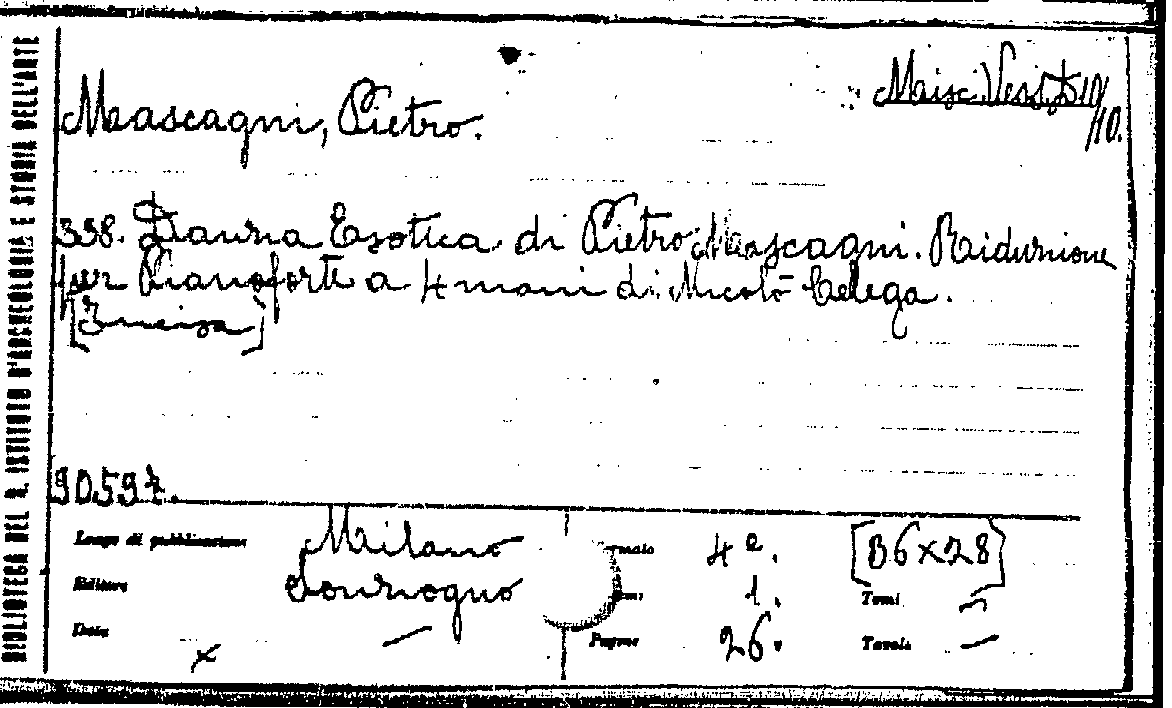 BIBLIOTECA DEL R. ISTITUTO D'ARCHEOLOGIA E STORIA DELL'ARTE
Mascagni, Pietro.
358. Danza Esotica di Pietro Mascagni. Riduzione
per Pianoforte a 4 mani di Nicolò Celega.
[Incisa]
90597.
Luogo di pubblicazione Milano Formato 4º. [36x28]
Editore Sonzogno 1. Tomi —
Data — Pagine 26. Tavole —
x